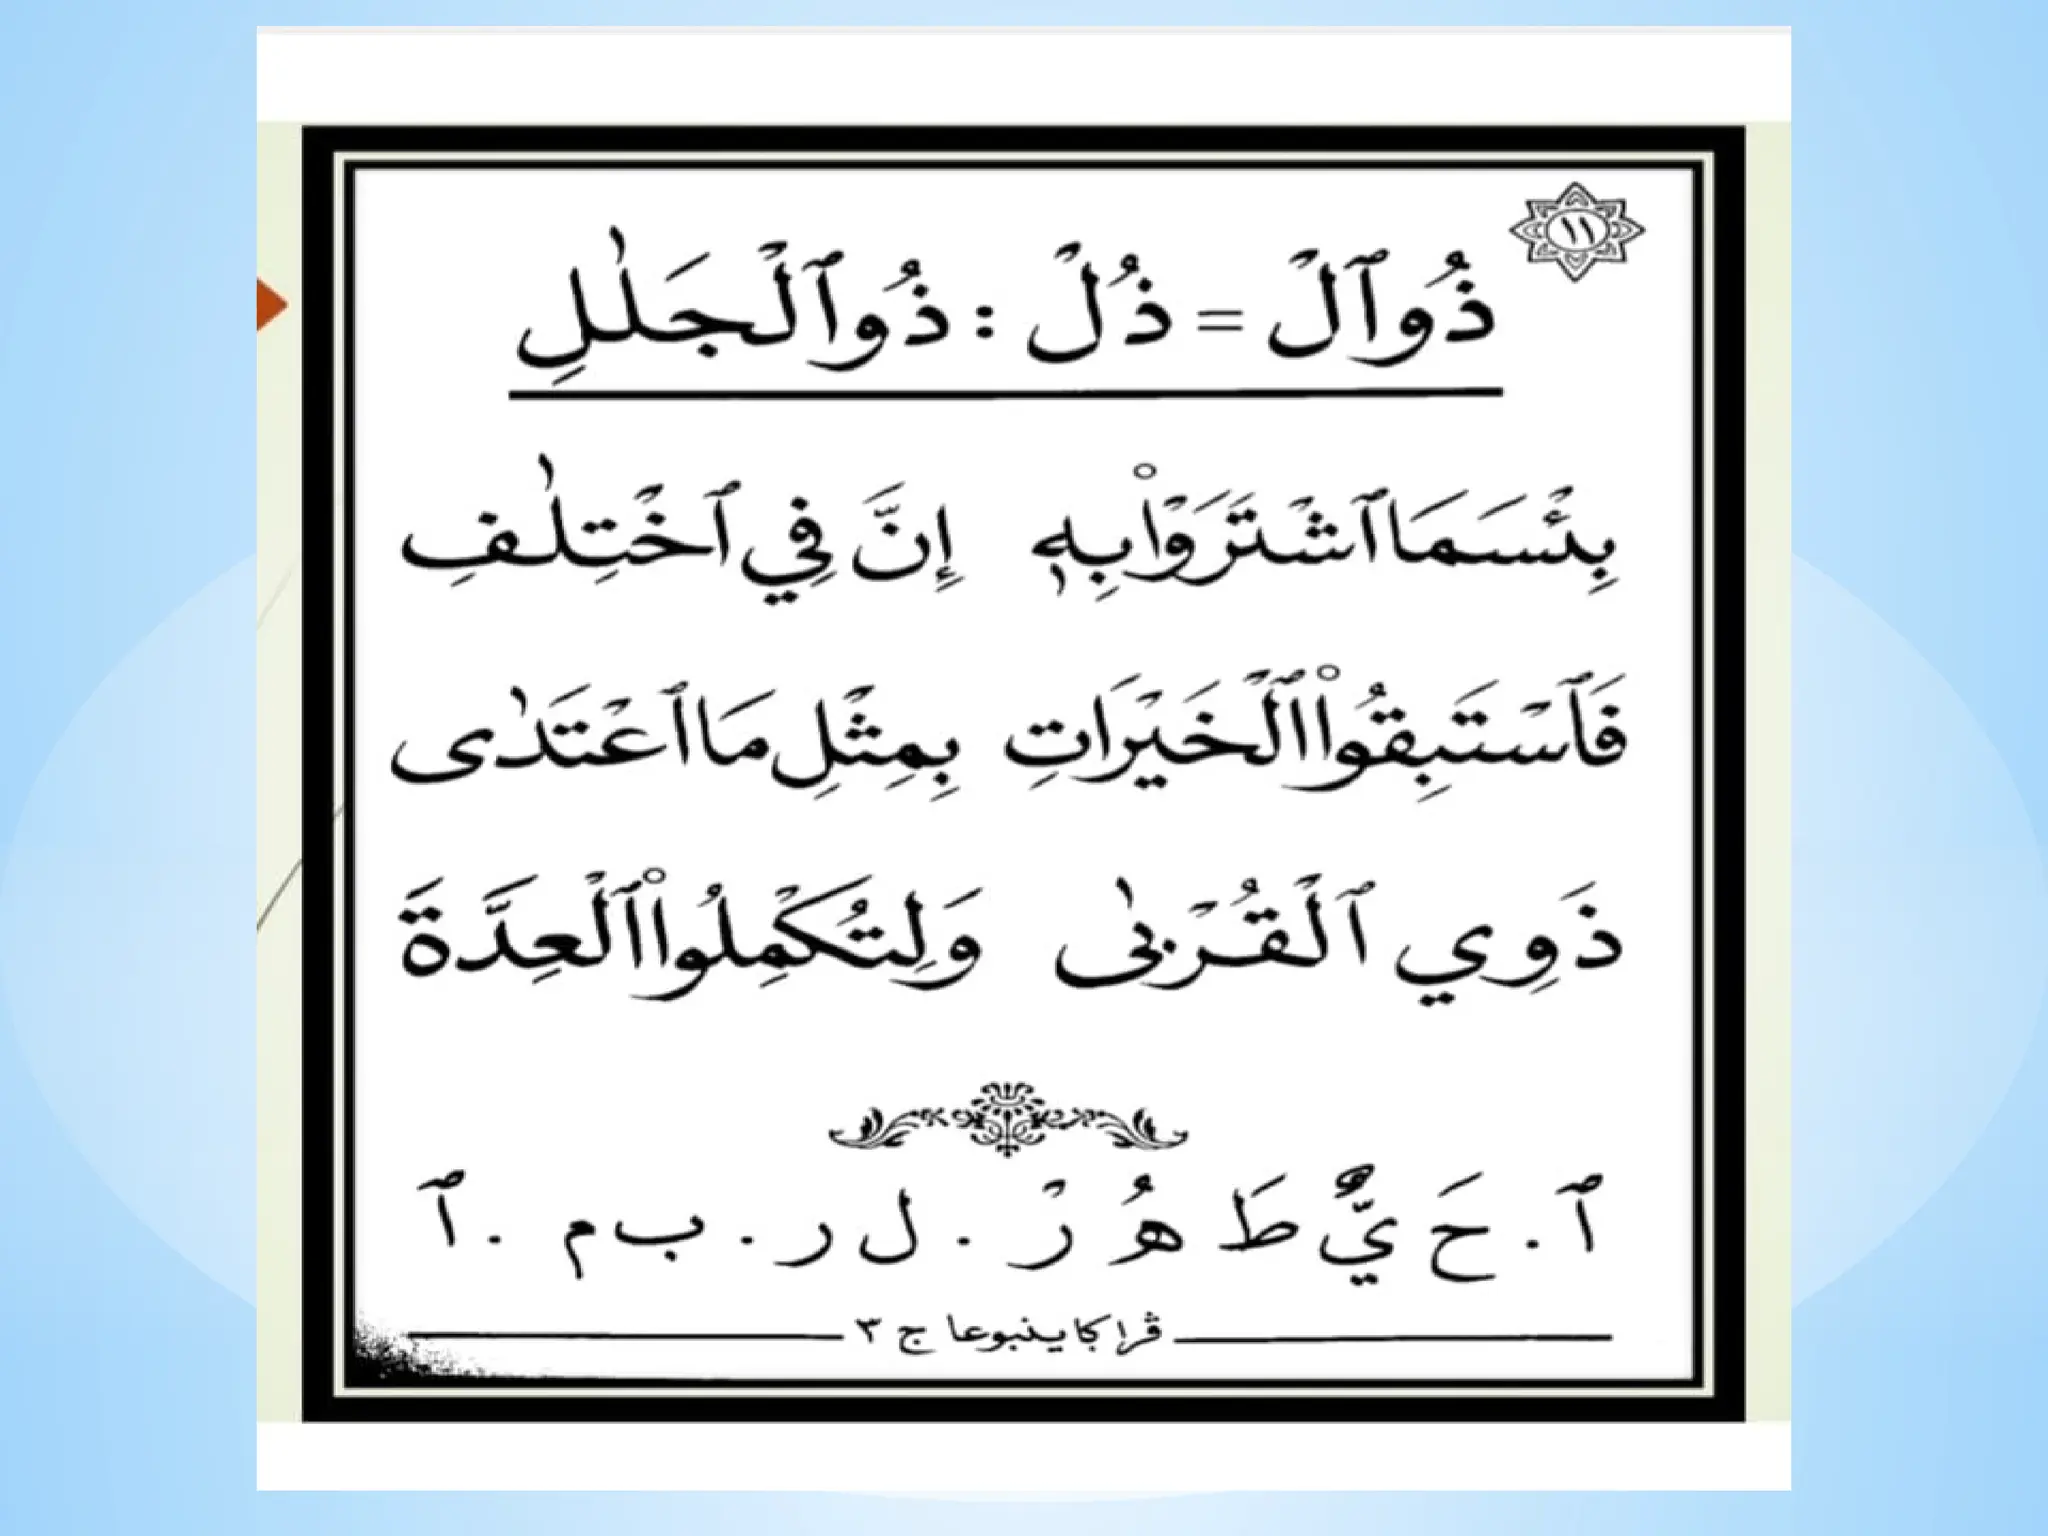 ١١
ذُوٱلْ = ذُلْ : ذُوٱلْجَلَٰلِ
بِئْسَمَاٱشْتَرَوْا۟بِهِۦ إِنَّ فِي ٱخْتِلَٰفِ
فَٱسْتَبِقُوا۟ٱلْخَيْرَاتِ بِمِثْلِ مَاٱعْتَدَٰى
ذَوِي ٱلْقُرْبَٰى وَلِتُكْمِلُوا۟ٱلْعِدَّةَ
ٱ . حَ يٌّ طَ هُ رْ . ل ر . ب م . ٱ
ج ٣